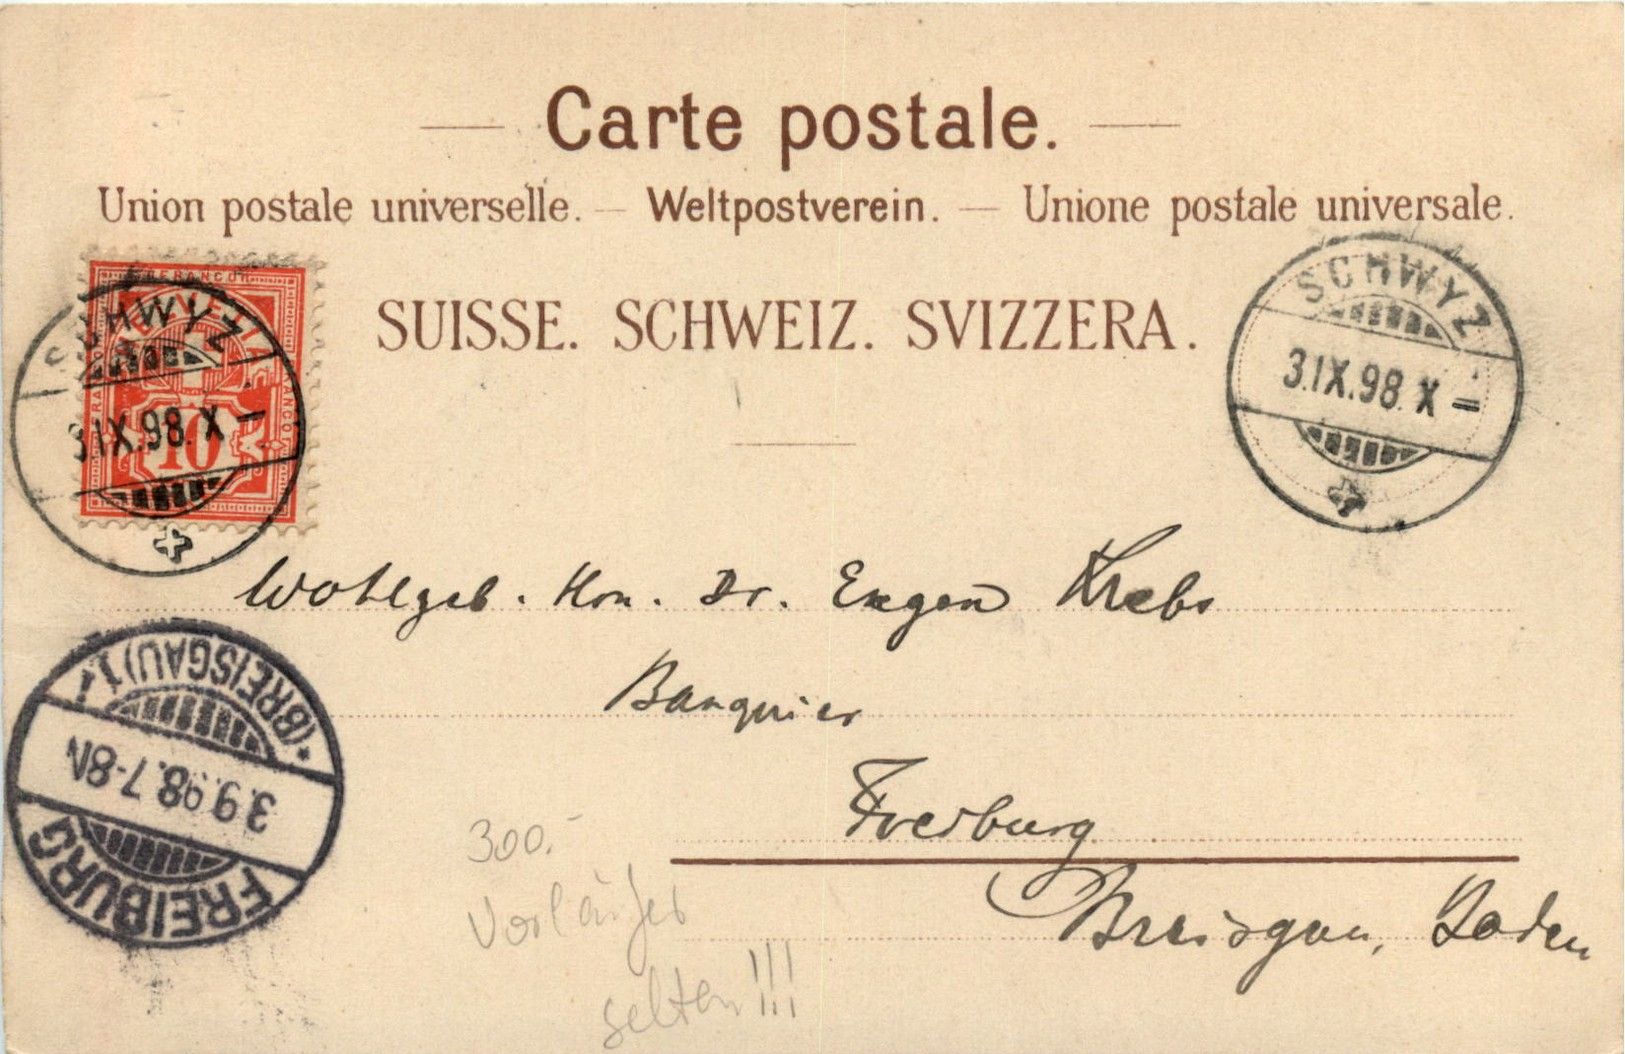 Carte postale.
Union postale universelle. — Weltpostverein. — Unione postale universale.
SUISSE. SCHWEIZ. SVIZZERA.
FRANCO HELVETIA FRANCO
10
SCHWYZ
3.IX.98.X–
SCHWYZ
3.IX.98.X=
Wohlgeb. Hrn. Dr. Eugen Krebs
Banquier
Freiburg
Breisgau, Baden
(BREISGAU) 1.
3.9.98.7-8N
FREIBURG
300.-
Vorläufer
selten!!!